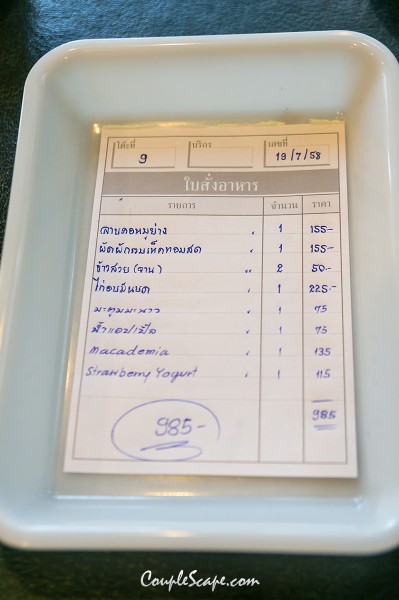 โต๊ะที่ 9 บริกร เลขที่ 19/7/58
ใบสั่งอาหาร
รายการ จำนวน ราคา
ลาบคอหมูย่าง 1 155-
ผัดผักรวมเห็ดหอมสด 1 155-
ข้าวสวย (จาน) 2 50-
ไก่อบ 1 225-
มะตูมมะนาว 1 75
น้ำแอปเปิ้ล 1 75
Macademia 1 135
Strawberry Yogurt 1 115
985- 985
CoupleScape.com